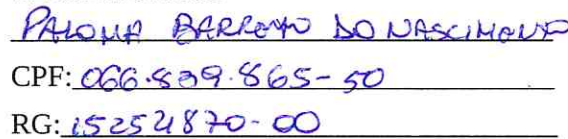 PALOMA BARRETO DO NASCIMENTO
CPF: 066.809.865-50
RG: 15254870-00